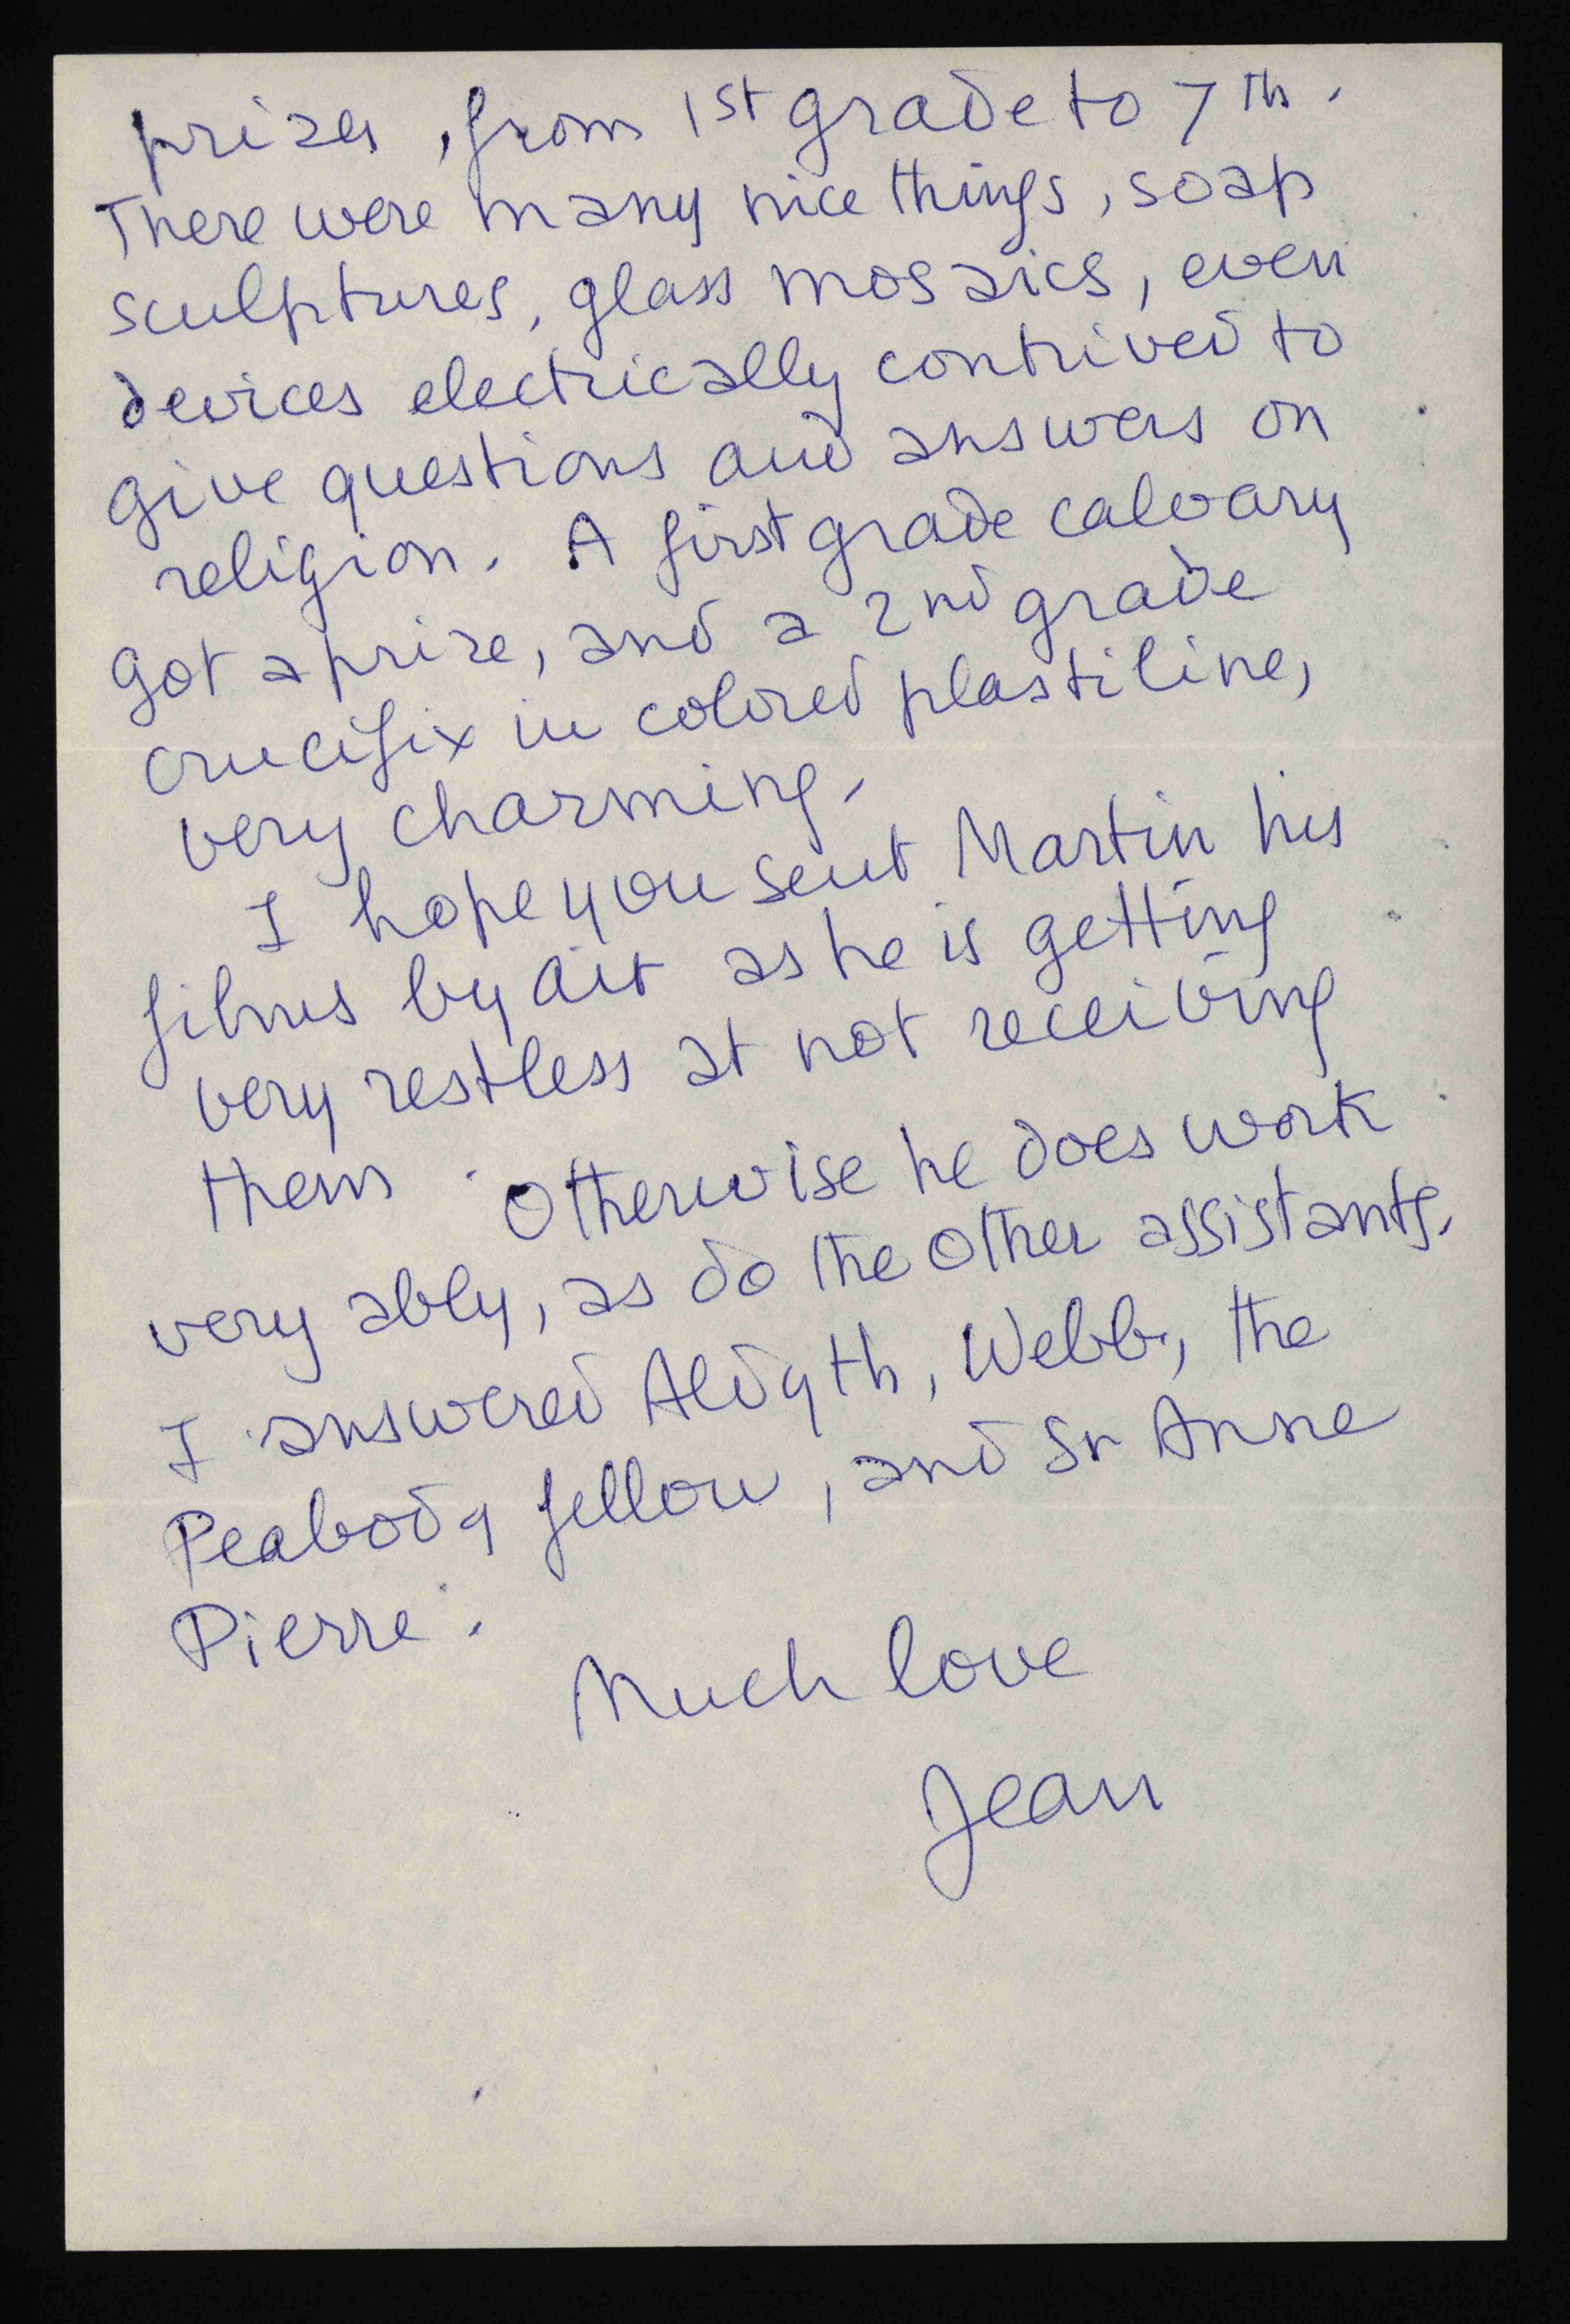 prizes, from 1st grade to 7th.
There were many nice things, soap
sculptures, glass mosaics, even
devices electrically contrived to
give questions and answers on
religion. A first grade calvary
got a prize, and a 2nd grade
crucifix in colored plastiline,
very charming.
I hope you sent Martin his
films by air as he is getting
very restless at not receiving
them. Otherwise he does work
very ably, as do the other assistants.
I answered Aldyth, Webb, the
Peabody fellow, and Sr Anne
Pierre.
Much love
Jean